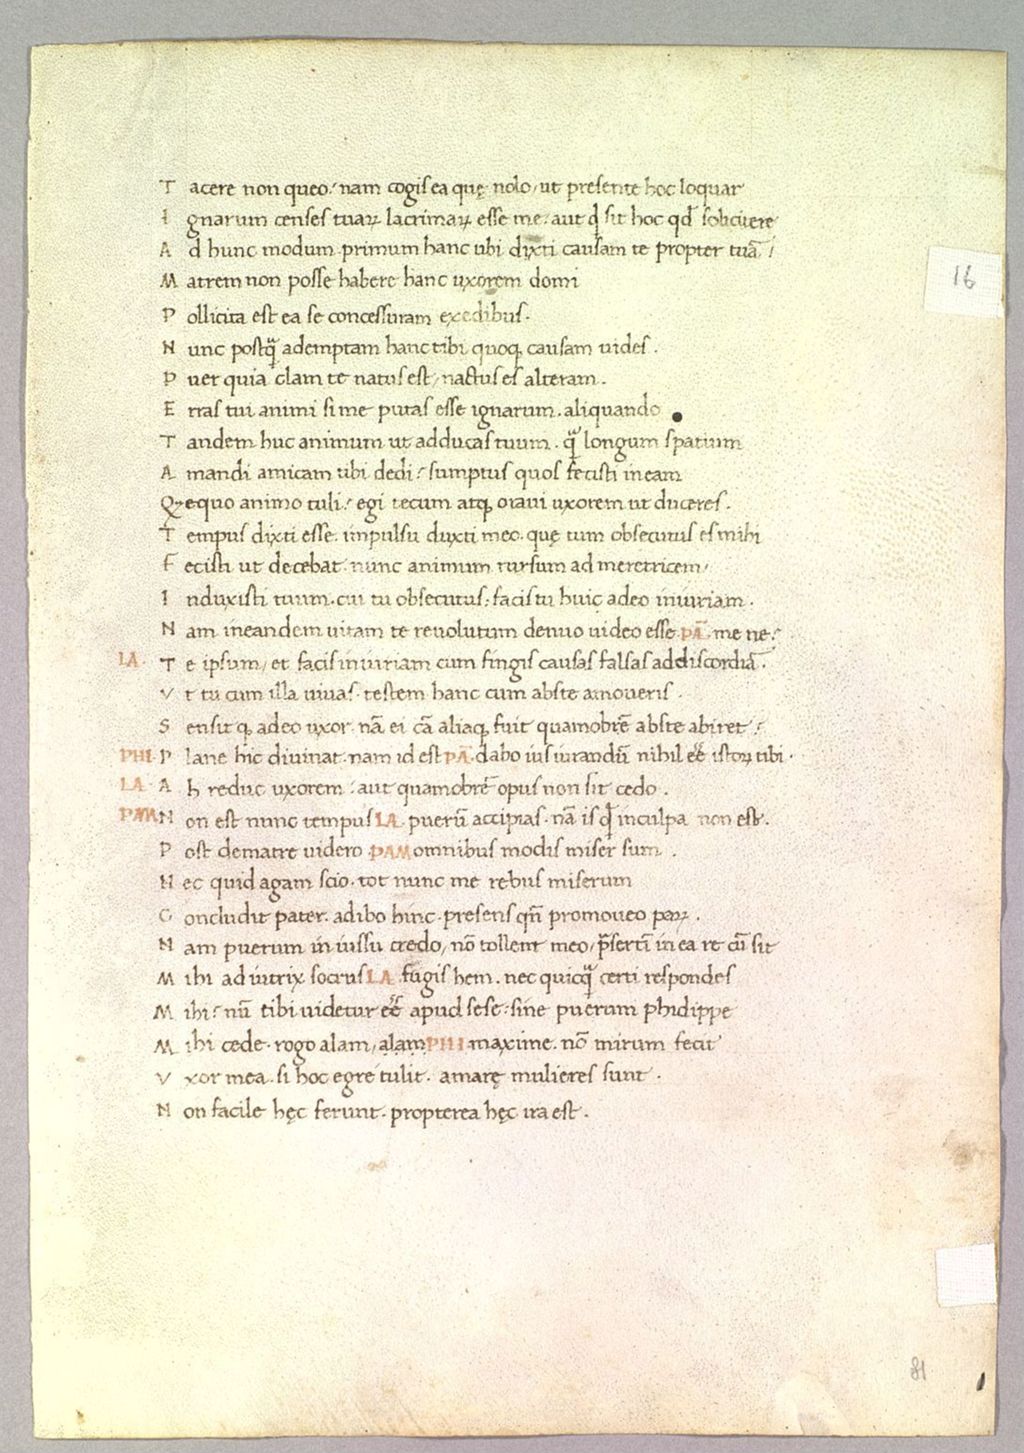 Tacere non queo. nam cogis ea quę nolo, ut presente hoc loquar
Ignarum censes tuaꝝ lacrimaꝝ esse me. aut qd̄ sit hoc qd̄ sollicitere
Ad hunc modum. primum hanc ubi dixti causam te propter tuā
Matrem non posse habere hanc uxorem domi
Pollicita est ea se concessuram exedibus.
Nunc postqꝫ ademptam hanc tibi quoqꝫ causam uides.
Puer quia clam te natus est, nactus es alteram.
Erras tui animi si me putas esse ignarum. aliquando
Tandem huc animum ut adducas tuum. quā longum spatium
Amandi amicam tibi dedi. sumptus quos fecisti in eam
Q equo animo tuli. egi tecum atqꝫ oraui uxorem ut duceres.
Tempus dixti esse. impulsu duxti meo. quę tum obsecutus es mihi
Fecisti ut decebat. nunc animum rursum ad meretricem
Induxisti tuum. cui tu obsecutus. facis tu huic adeo iniuriam.
Nam ineandem uitam te reuolutum denuo uideo esse. PĀ. me ne.
LA. Te ipsum, et facis iniuriam cum fingis causas falsas addiscordiā.
Vt tu cum illa uiuas. testem hanc cum abste amoueris.
Sensit qꝫ adeo uxor. nā ei cā aliaqꝫ fuit quamobrē abste abiret.
PHI. Plane hic diuinat. nam id est PĀ. dabo ius iurandū nihil eē istoꝝ tibi.
LA. Ah reduc uxorem. aut quamobrē opus non sit cedo.
PAM Non est nunc tempus LA. puerū accipias. nā is qd̄ inculpa non est.
Post de matre uidero PAM omnibus modis miser sum.
Nec quid agam scio. tot nunc me rebus miserum
Concludit pater. adibo hinc. presens qn̄ promoueo parꝝ.
Nam puerum in iussu credo, nō tollent meo, p̄sertī in ea re cū sit
Mihi adiutrix socrus LA. fugis hem. nec quicqꝫ certi respondes
Mihi. nū tibi uidetur eē apud sese. sine puerum phidippe
Mihi cede. rogo alam, alam PHI maxime. nō mirum fecit
Vxor mea. si hoc egre tulit. amarę mulieres sunt.
Non facile hęc ferunt. propterea hęc ira est.
16
81